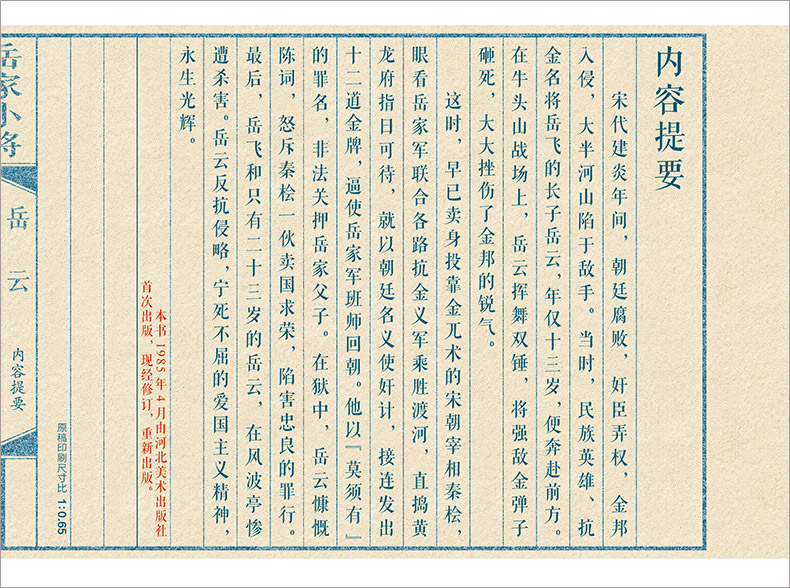 内容提要
宋代建炎年间，朝廷腐败，奸臣弄权，金邦
入侵，大半河山陷于敌手。当时，民族英雄、抗
金名将岳飞的长子岳云，年仅十三岁，便奔赴前方。
在牛头山战场上，岳云挥舞双锤，将强敌金弹子
砸死，大大挫伤了金邦的锐气。
这时，早已卖身投靠金兀术的宋朝宰相秦桧，
眼看岳家军联合各路抗金义军乘胜渡河，直捣黄
龙府指日可待，就以朝廷名义使奸计，接连发出
十二道金牌，逼使岳家军班师回朝。他以『莫须有』
的罪名，非法关押岳家父子。在狱中，岳云慷慨
陈词，怒斥秦桧一伙卖国求荣，陷害忠良的罪行。
最后，岳飞和只有二十三岁的岳云，在风波亭惨
遭杀害。岳云反抗侵略，宁死不屈的爱国主义精神，
永生光辉。
本书1985年4月由河北美术出版社
首次出版，现经修订，重新出版。
原稿印刷尺寸比 1:0.65
岳家小将
岳云
内容提要